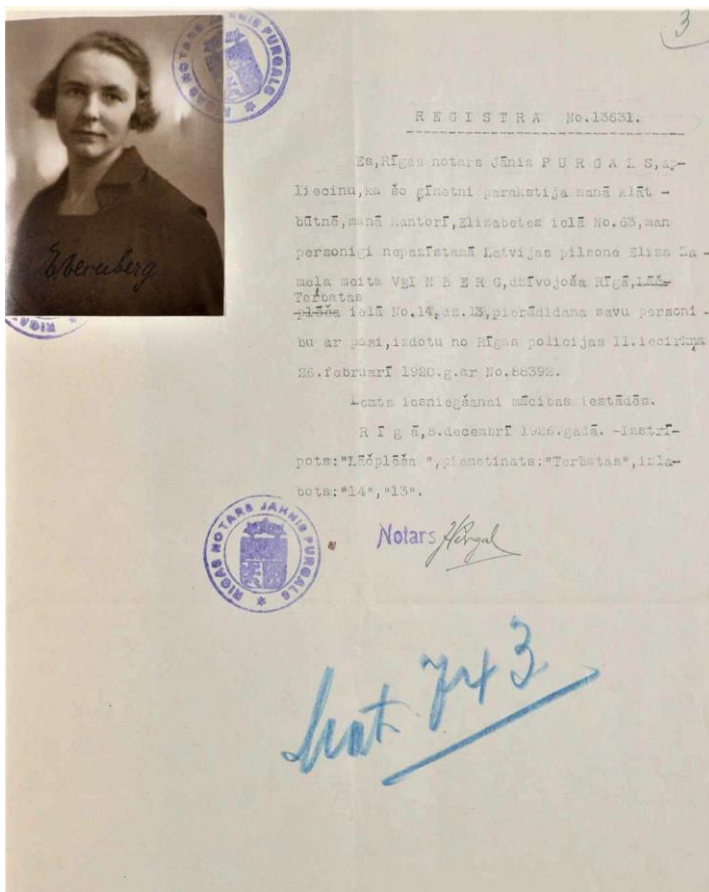 3
RIGAS NOTARS JAHNIS PURGALS
REGISTRA No.13631.
Es,Rīgas notars Jānis PURGALS,ap-
liecinu,ka šo ģīmetni parakstīja manā klāt -
būtnē,manā kantorī,Elizabetes ielā No.63,man
personīgi nepazīstamā Latvijas pilsone Eliza Sa -
mela meita VEINBERG,dzīvojoša Rīgā,Lāč-
Terbatas
plēša ielā No.14,dz.13,pierādīdama savu personī -
bu ar pasi,izdotu no Rīgas policijas II.iecirkņa
26.februarī 1920.g.ar No.88392.
Lemts iesniegšanai mācības iestādēs.
RĪGĀ,8.decembrī 1926.gadā. -Izstrī-
pots:"Lāčplēša ",piemetināts:"Terbatas",izla-
bots:"14","13".
RIGAS NOTARS JAHNIS PURGALS
Notars
Mat. 743